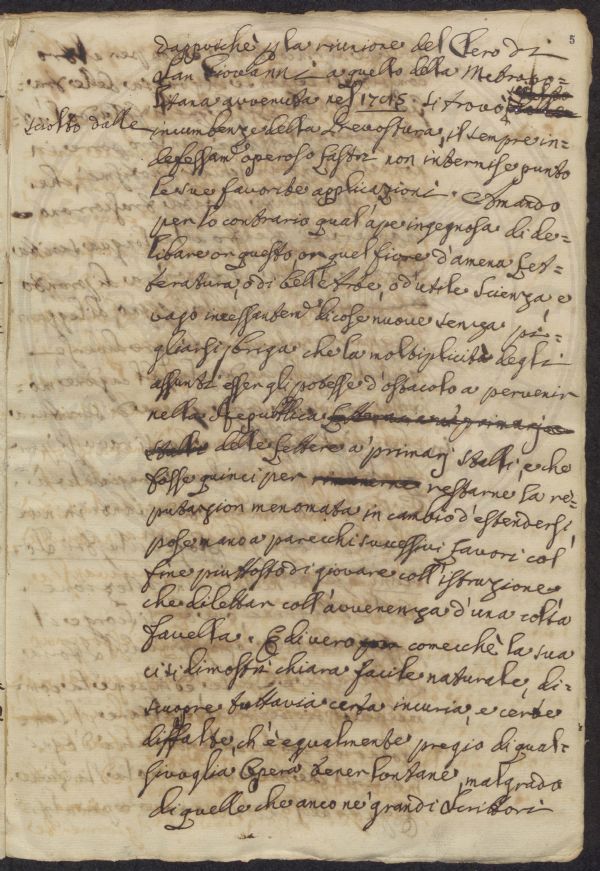 5
Dappoichè p la riunione del Clero di
San Giovanni a quello della Metropo=
litana avvenuta nel 1715. si trovò
sciolto dalle
incumbenze della Prevostura, il sempre in=
defessam.e operoso Lastri non intermise punto
le sue favorite applicazioni. Amando
per lo contrario qual'ape ingegnosa di de=
libare or questo or quel fiore d'amena Let=
teratura, o di bell'Arte, o d'utile Scienza e
vago incessantem.e di cose nuove senza pi=
gliarsi briga che la moltiplicità degli
assunti esser gli potesse d'ostacolo a pervenir
nella Repubblica
delle Lettere a' primarj stalli, e che
fosse quinci per rimanerne restarne la re=
putazion menomata in cambio d'estendersi
pose mano a parecchi successivi lavori col
fine piuttosto di giovare coll'istruzione
che dilettar coll'avvenenza d'una colta
favella. E di vero comecchè la sua
ci si dimostri chiara facile naturale, di=
scuopre tuttavia certa incuria, e certe
diffalte, ch'è egualmente pregio di qual=
sivoglia Opera tener lontane, malgrado
di quelle che anco ne' grandi Scrittori